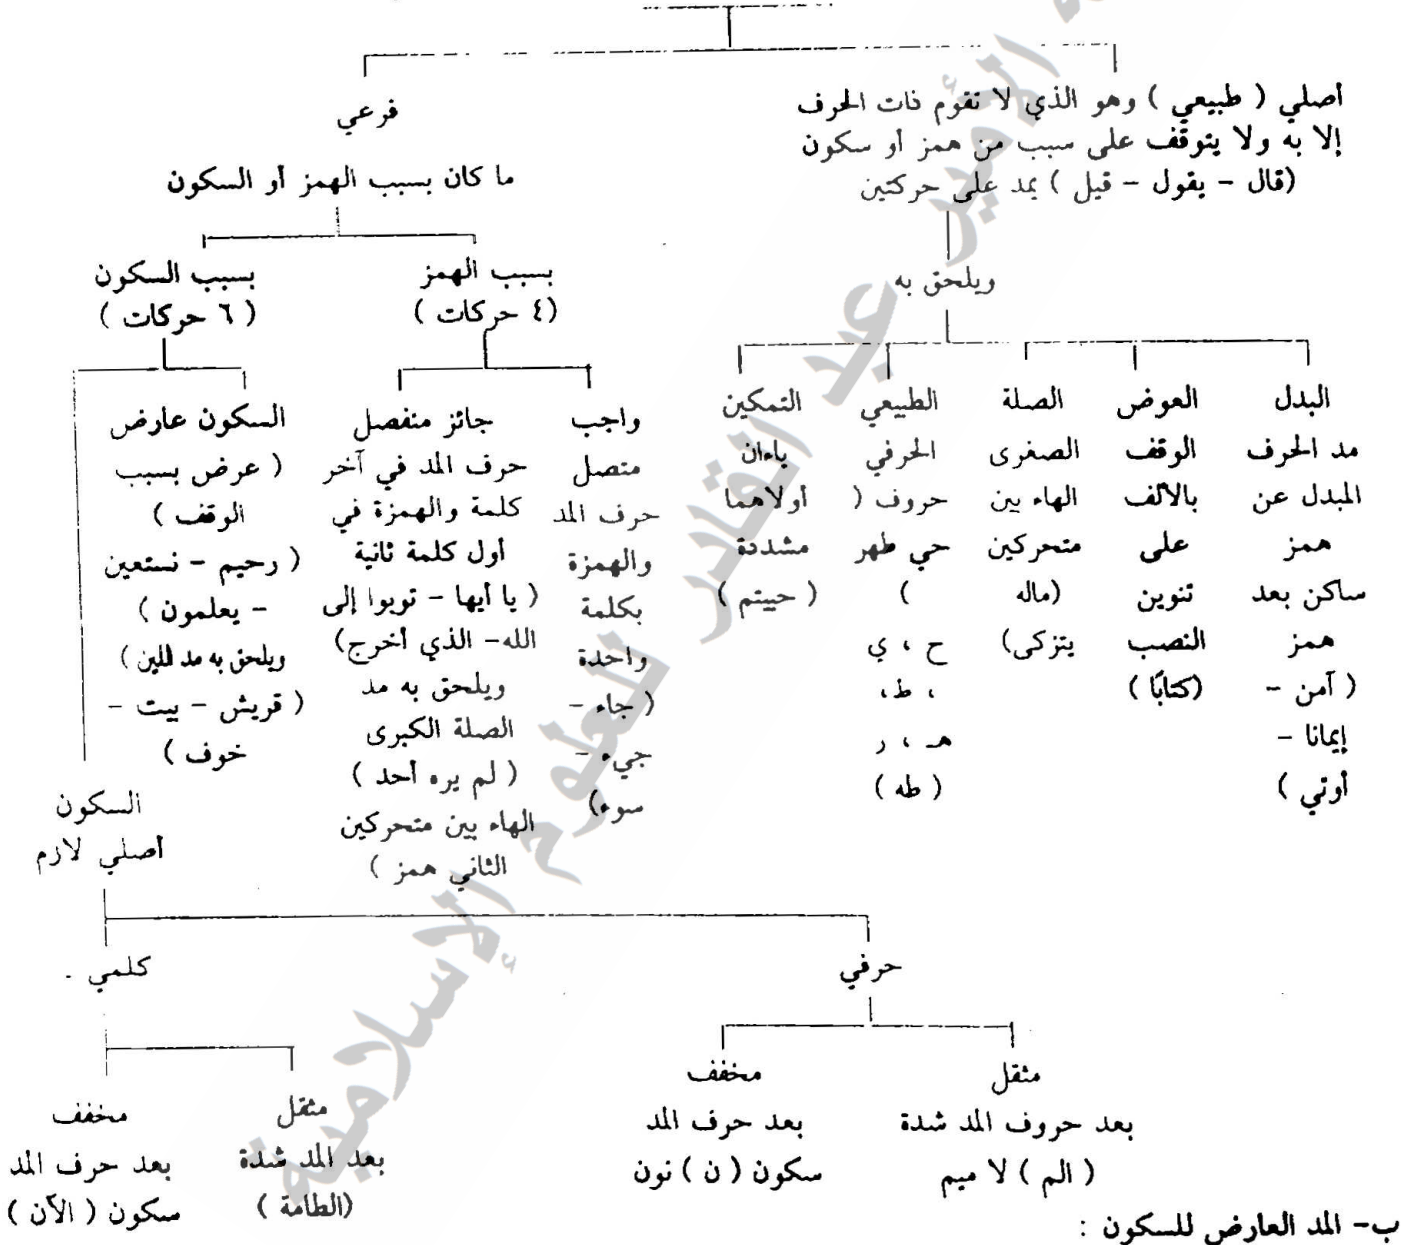 أصلي ( طبيعي ) وهو الذي لا تقوم ذات الحرف
إلا به ولا يتوقف على سبب من همز أو سكون
(قال - يقول - قيل ) يمد على حركتين
ويلحق به
البدل
مد الحرف
المبدل عن
همز
ساكن بعد
همز
( آمن -
إيمانا -
أوتي )
العوض
الوقف
بالألف
على
تنوين
النصب
(كتابًا )
الصلة
الصغرى
الهاء بين
متحركين
(ماله
يتزكى)
الطبيعي
الحرفي
حروف (
حي طهر
)
ح ، ي
، ط،
هـ ، ر
( طه )
التمكين
ياءان
أولاهما
مشددة
( حييتم )
فرعي
ما كان بسبب الهمز أو السكون
بسبب الهمز
(٤ حركات )
واجب
متصل
حرف المد
والهمزة
بكلمة
واحدة
( جاء -
جيء -
سوء)
جائز منفصل
حرف المد في آخر
كلمة والهمزة في
أول كلمة ثانية
( يا أيها - توبوا إلى
الله- الذي أخرج)
ويلحق به مد
الصلة الكبرى
( لم يره أحد )
الهاء بين متحركين
الثاني همز )
بسبب السكون
( ٦ حركات )
السكون عارض
( عرض بسبب
الوقف )
( رحيم - نستعين
- يعلمون )
ويلحق به مد اللين )
( قريش - بيت -
خوف )
السكون
أصلي لازم
حرفي
مثقل
بعد حروف المد شدة
( الم ) لا ميم
مخفف
بعد حرف المد
سكون ( ن ) نون
كلمي .
مثقل
بعد المد شدة
(الطامة )
مخفف
بعد حرف المد
سكون ( الآن )
ب- المد العارض للسكون :
الأمير عبد القادر للعلوم الإسلامية